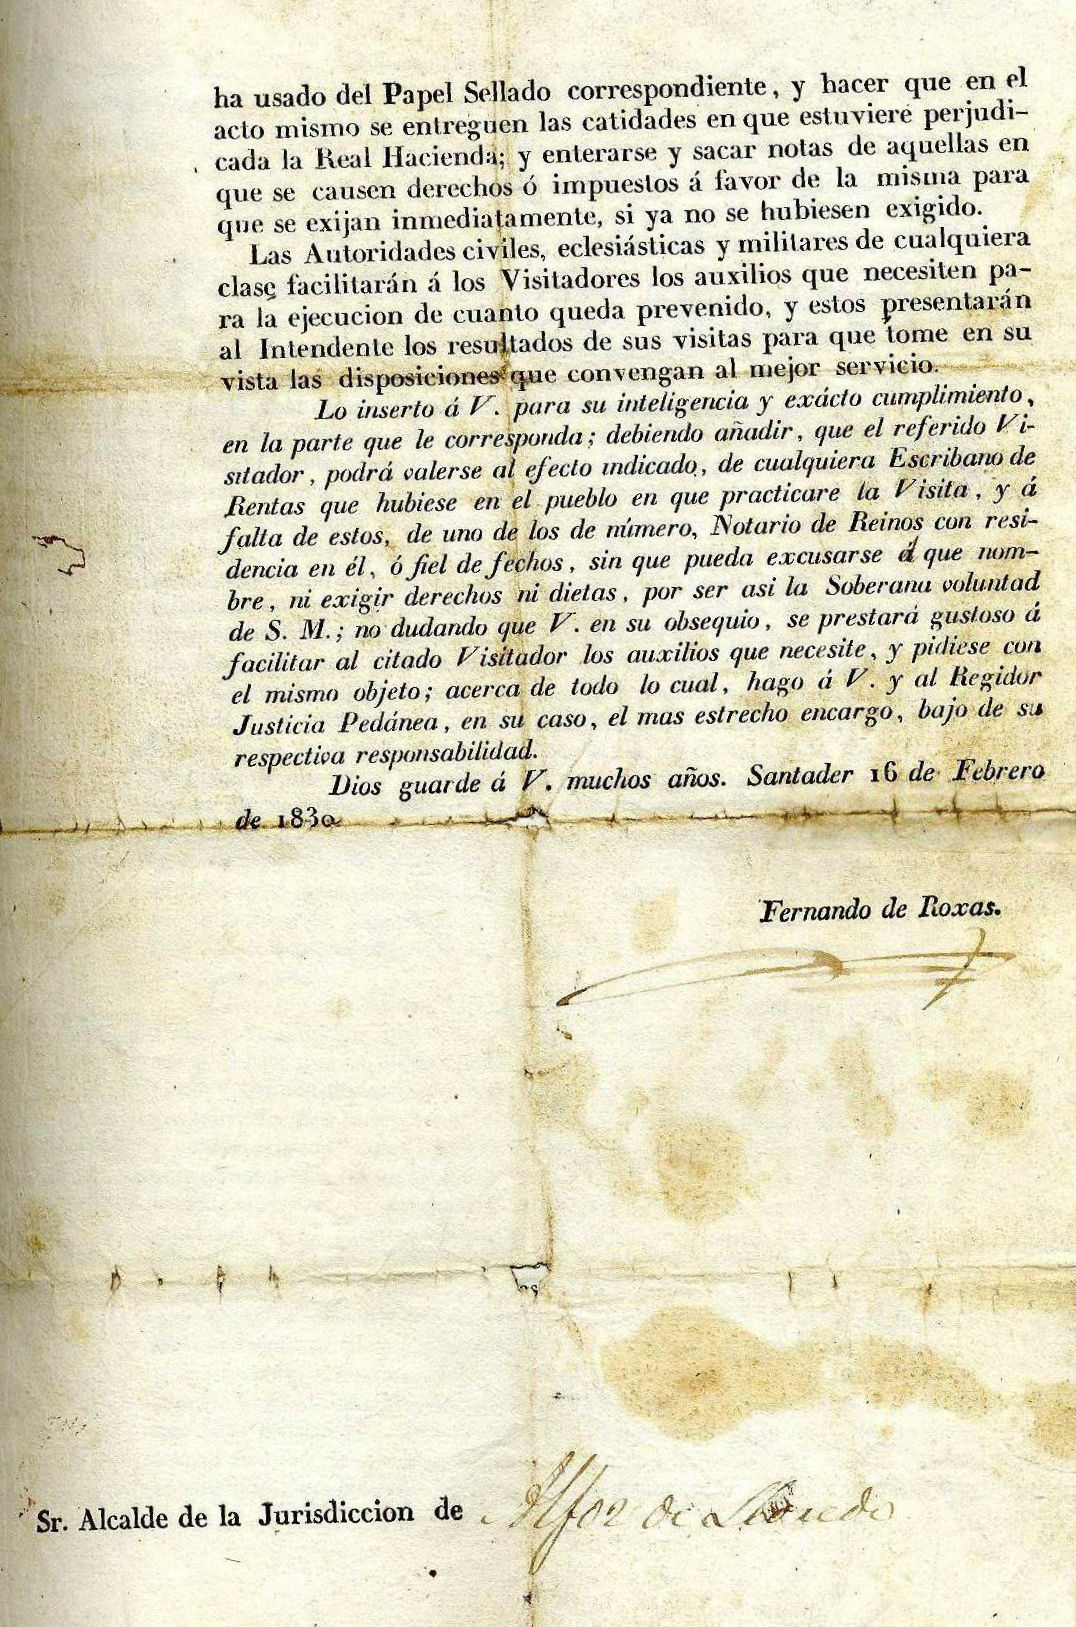 ha usado del Papel Sellado correspondiente, y hacer que en el
acto mismo se entreguen las catidades en que estuviere perjudi-
cada la Real Hacienda; y enterarse y sacar notas de aquellas en
que se causen derechos ó impuestos á favor de la misma para
que se exijan inmediatamente, si ya no se hubiesen exigido.
Las Autoridades civiles, eclesiásticas y militares de cualquiera
clase facilitarán á los Visitadores los auxilios que necesiten pa-
ra la ejecucion de cuanto queda prevenido, y estos presentarán
al Intendente los resultados de sus visitas para que tome en su
vista las disposiciones que convengan al mejor servicio.
Lo inserto á V. para su inteligencia y exácto cumplimiento,
en la parte que le corresponda; debiendo añadir, que el referido Vi-
sitador, podrá valerse al efecto indicado, de cualquiera Escribano de
Rentas que hubiese en el pueblo en que practicare la Visita, y á
falta de estos, de uno de los de número, Notario de Reinos con resi-
dencia en él, ó fiel de fechos, sin que pueda excusarse el que nom-
bre, ni exigir derechos ni dietas, por ser asi la Soberana voluntad
de S. M.; no dudando que V. en su obsequio, se prestará gustoso á
facilitar al citado Visitador los auxilios que necesite, y pidiese con
el mismo objeto; acerca de todo lo cual, hago á V. y al Regidor
Justicia Pedánea, en su caso, el mas estrecho encargo, bajo de su
respectiva responsabilidad.
Dios guarde á V. muchos años. Santader 16 de Febrero
de 1830
Fernando de Roxas.
Sr. Alcalde de la Jurisdiccion de Alfoz de Lloredo